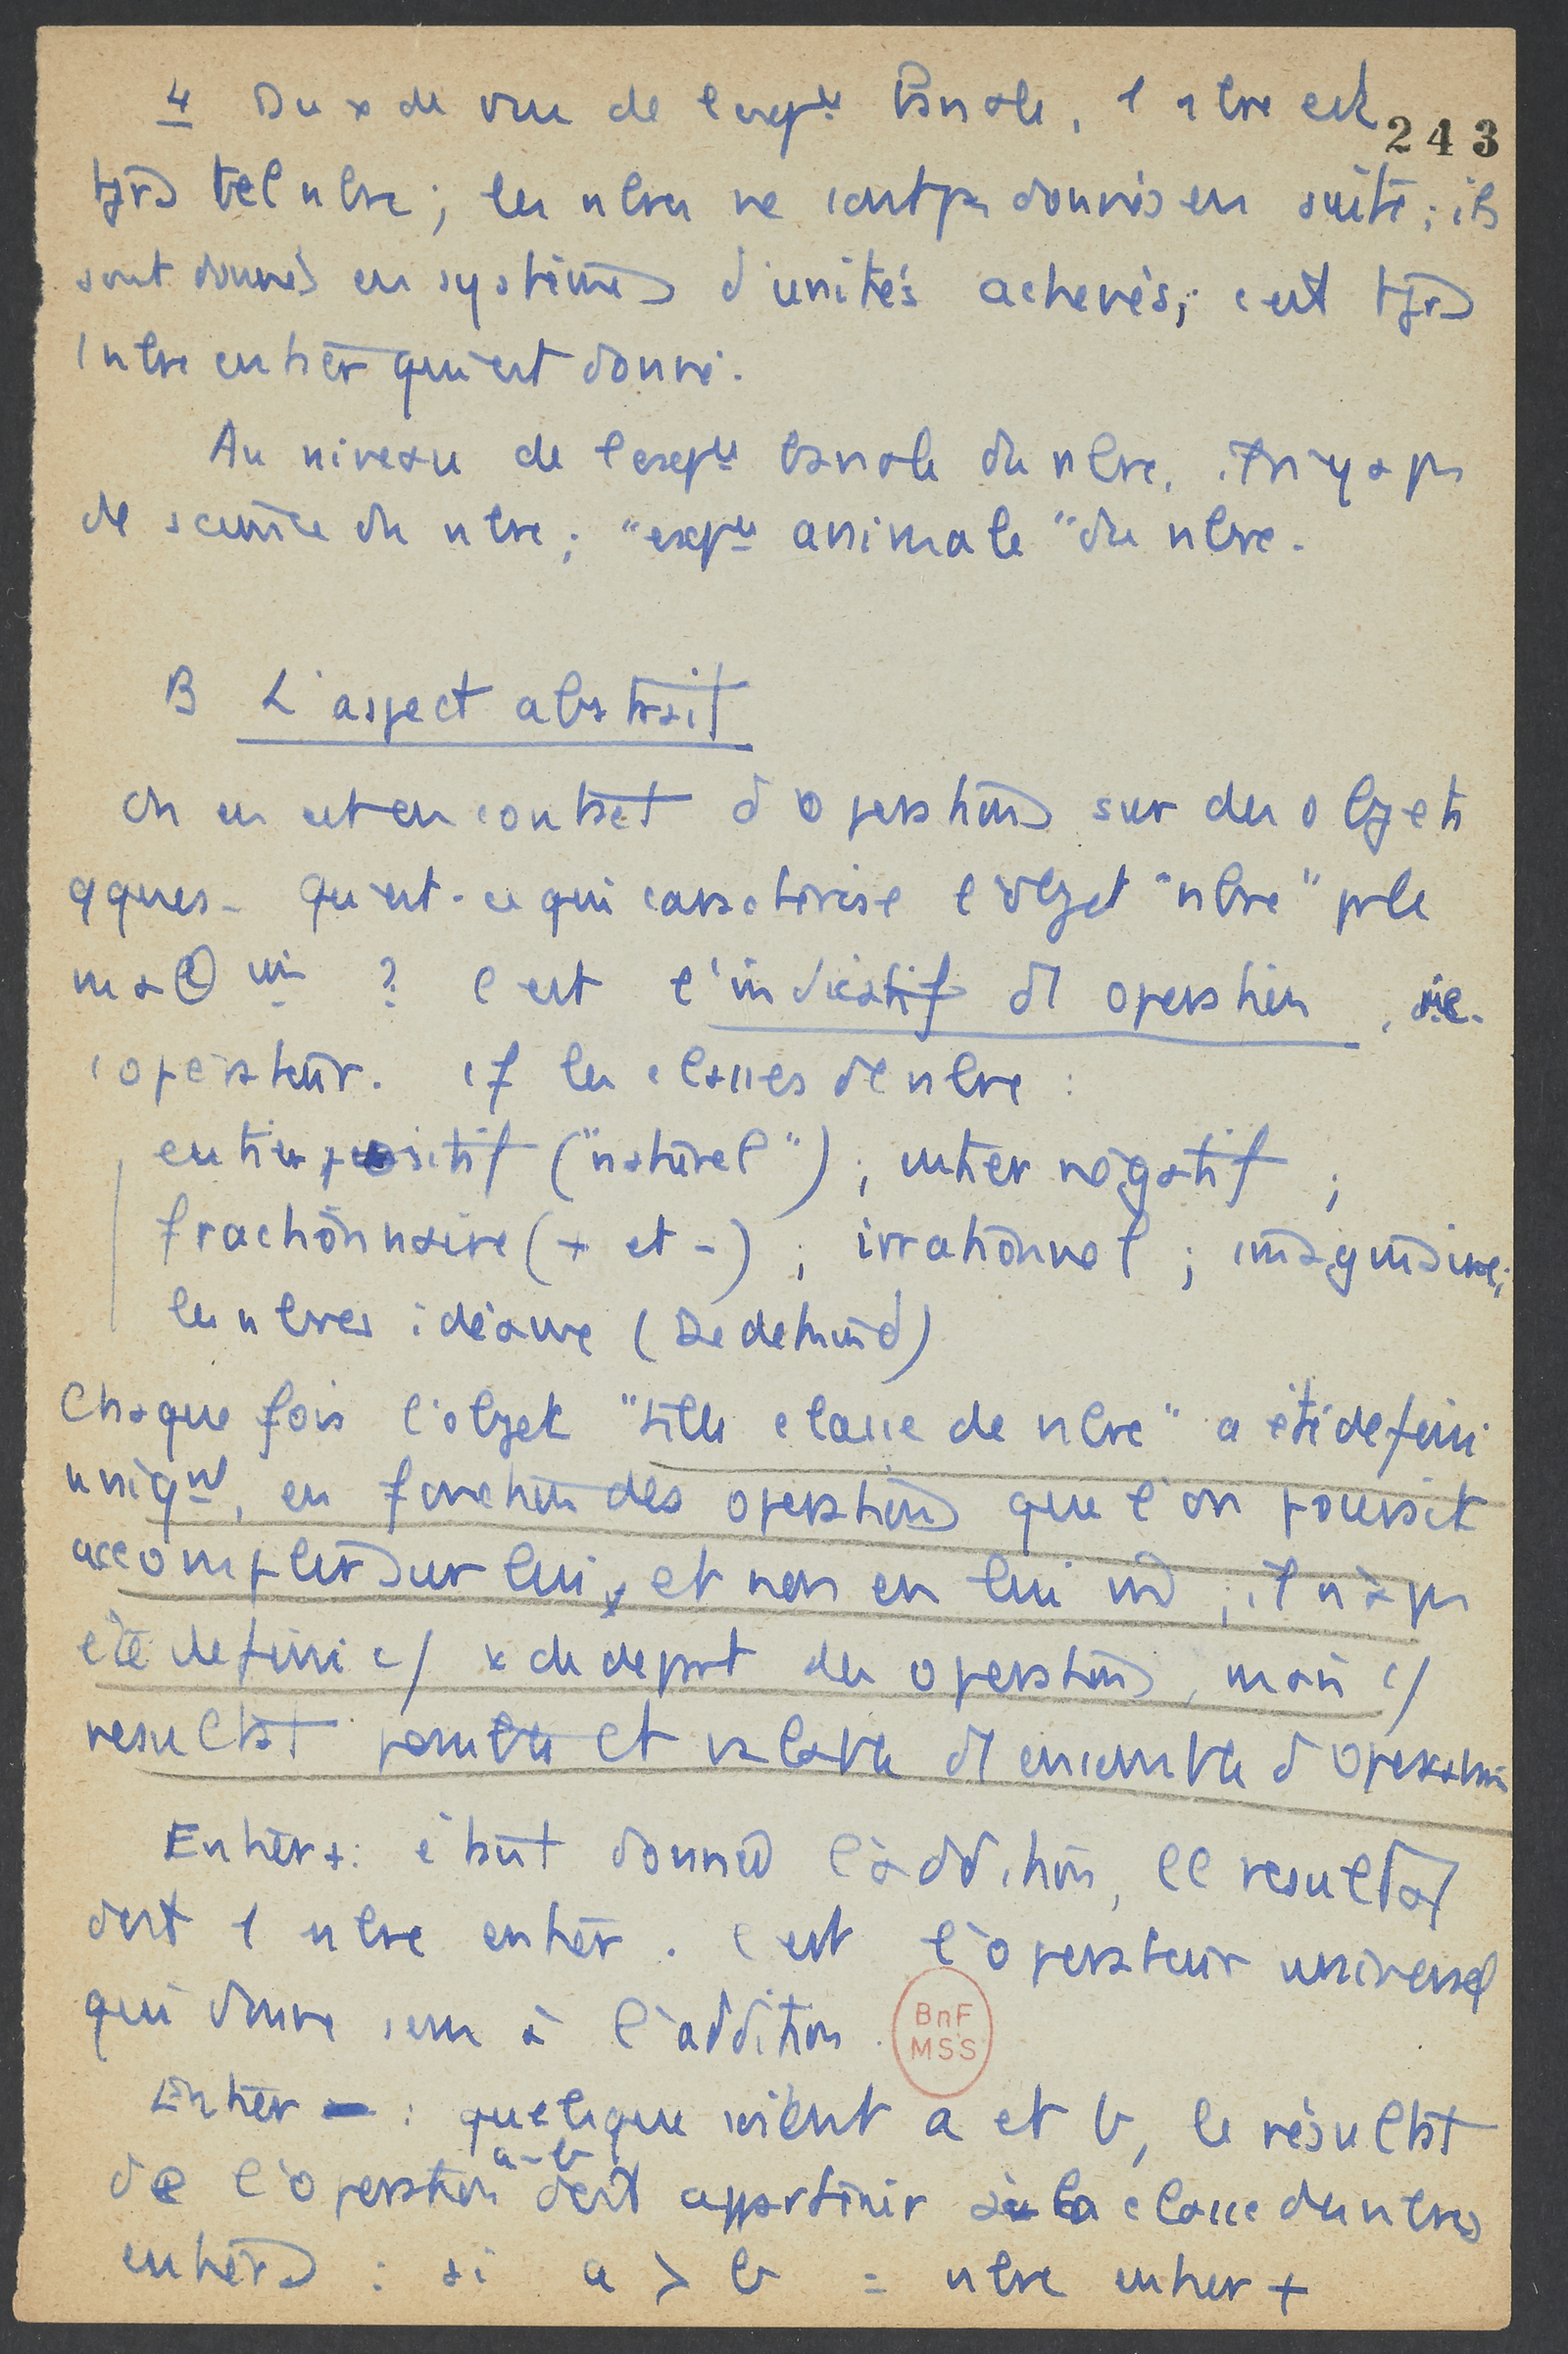 4 Du x de vue de l'expce banale, 1 nbre est
243
tjrs tel nbre ; les nbres ne sont pas donnés en suite ; ils
sont donnés en systèmes d'unités achevés ; c'est tjrs
1 nbre entier qui est donné.
Au niveau de l'expce banale du nbre, il n'y a pas
de science du nbre ; "expce animale" du nbre.
B L'aspect abstrait
On en est en contact d'opérations sur des objets
qques. Qu'est-ce qui caractérise l'objet "nbre" pr le
? C'est l'indicatif d'1 opération, i.e.
1 opérateur. cf les classes de nbre :
entier positif ("naturel") ; entier négatif ;
fractionnaire (+ et -) ; irrationnel ; imaginaire ;
les nbres idéaux (Dedekind)
Chaque fois l'objet "telle classe de nbre" a été défini
uniqnt, en fonction des opérations que l'on pouvait
accomplir sur lui, et non en lui m ; il n'a pas
été défini c/ x de départ des opérations, mais c/
résultat possible et valable d'1 ensemble d'opérations
Entier + : étant donné l'addition, le résultat
doit 1 nbre entier. C'est l'opérateur universel
qui donne sens à l'addition.
BnF
MSS
Entier - : quelque soient a et b, le résultat
a-b
de l'opération doit appartenir à la classe des nbres
entiers : si a > b = nbre entier +